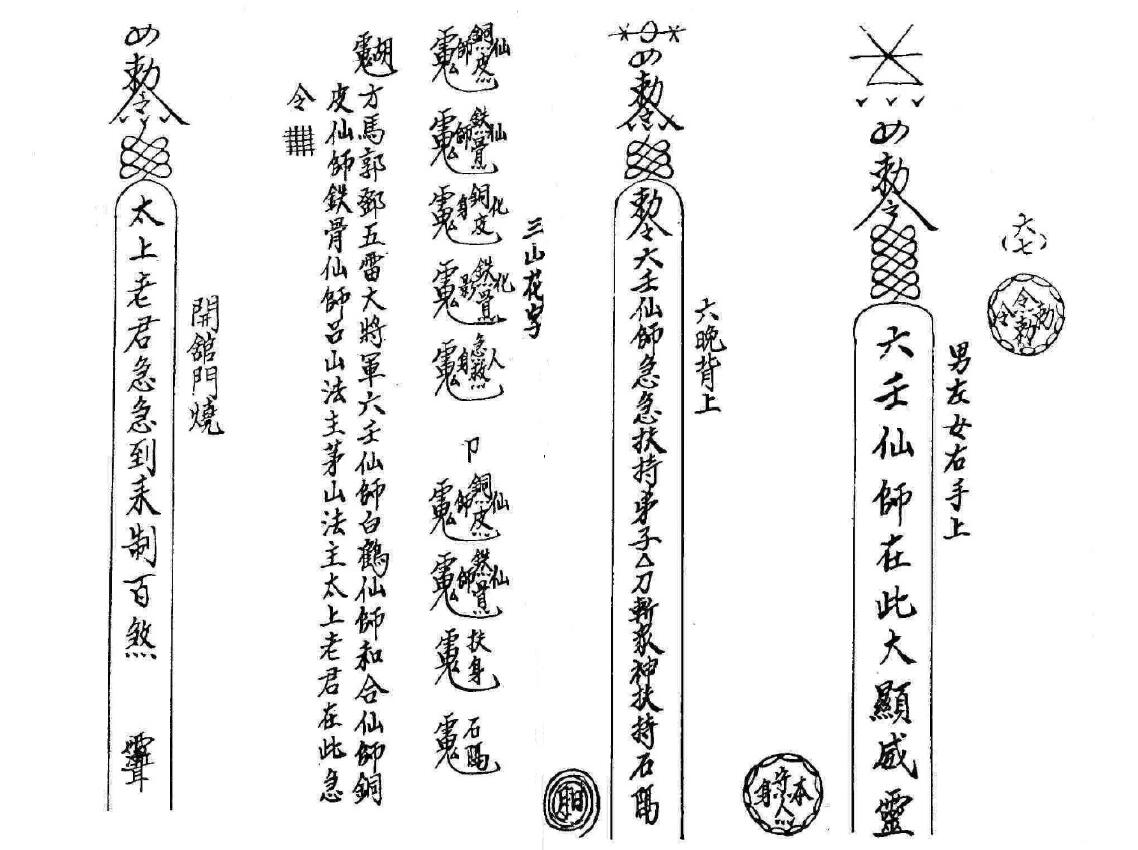 六七
勅令
男左女右手上
勅令
六壬仙師在此大顯威靈
本身守人
六晚背上
勅令
勅令六壬仙師急急扶持弟子厶刀斬眾神扶持石
三山花字
銅皮仙師
鉄骨仙師
銅皮化身
鉄骨化影
急救人身
卩
銅皮仙師
鉄骨仙師
扶身
石
胡
方馬郭鄧五雷大將軍六壬仙師白鶴仙師和合仙師銅
皮仙師鉄骨仙師呂山法主茅山法主太上老君在此急
令
開舘門燒
勅令
太上老君急急到來制百煞